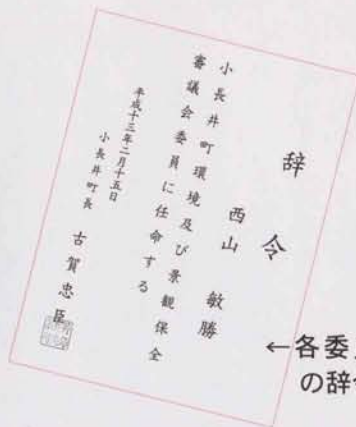 辞令
西山 敏勝
小長井町環境及び景観保全
審議会委員に任命する
平成十三年二月十五日
小長井町長 古賀忠臣
←各委
の辞令